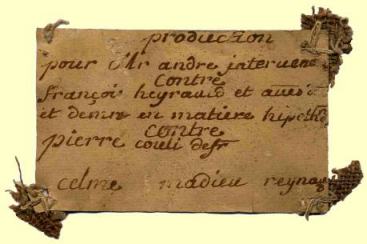 production
pour Mr andre intervenant
contre
françois heyraud et
et demre en matiere hipoth
contre
pierre couli defr
celme madieu reynau